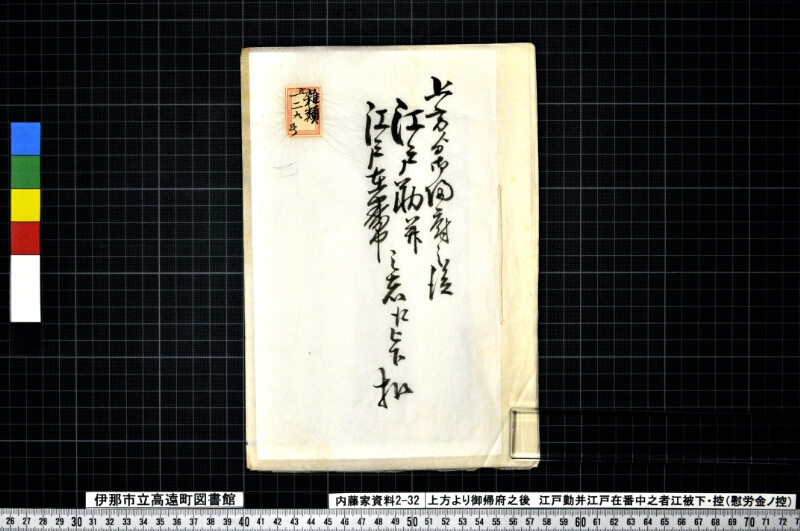 上方ゟ御帰府之後
江戸勤并
江戸在番中
之者江被下
控
雑類
五一二九号
伊那市立高遠町図書館
内藤家資料2-32
上方より御帰府之後 江戸勤并江戸在番中之者江被下・控(慰労金ノ控)
26 27 28 29 30 31 32 33 34 35 36 37 38 39 40 41 42 43 44 45 46 47 48 49 50 51 52 53 54 55 56 57 58 59 60 61 62 63 64 65 66 67 68 69 70 71 72